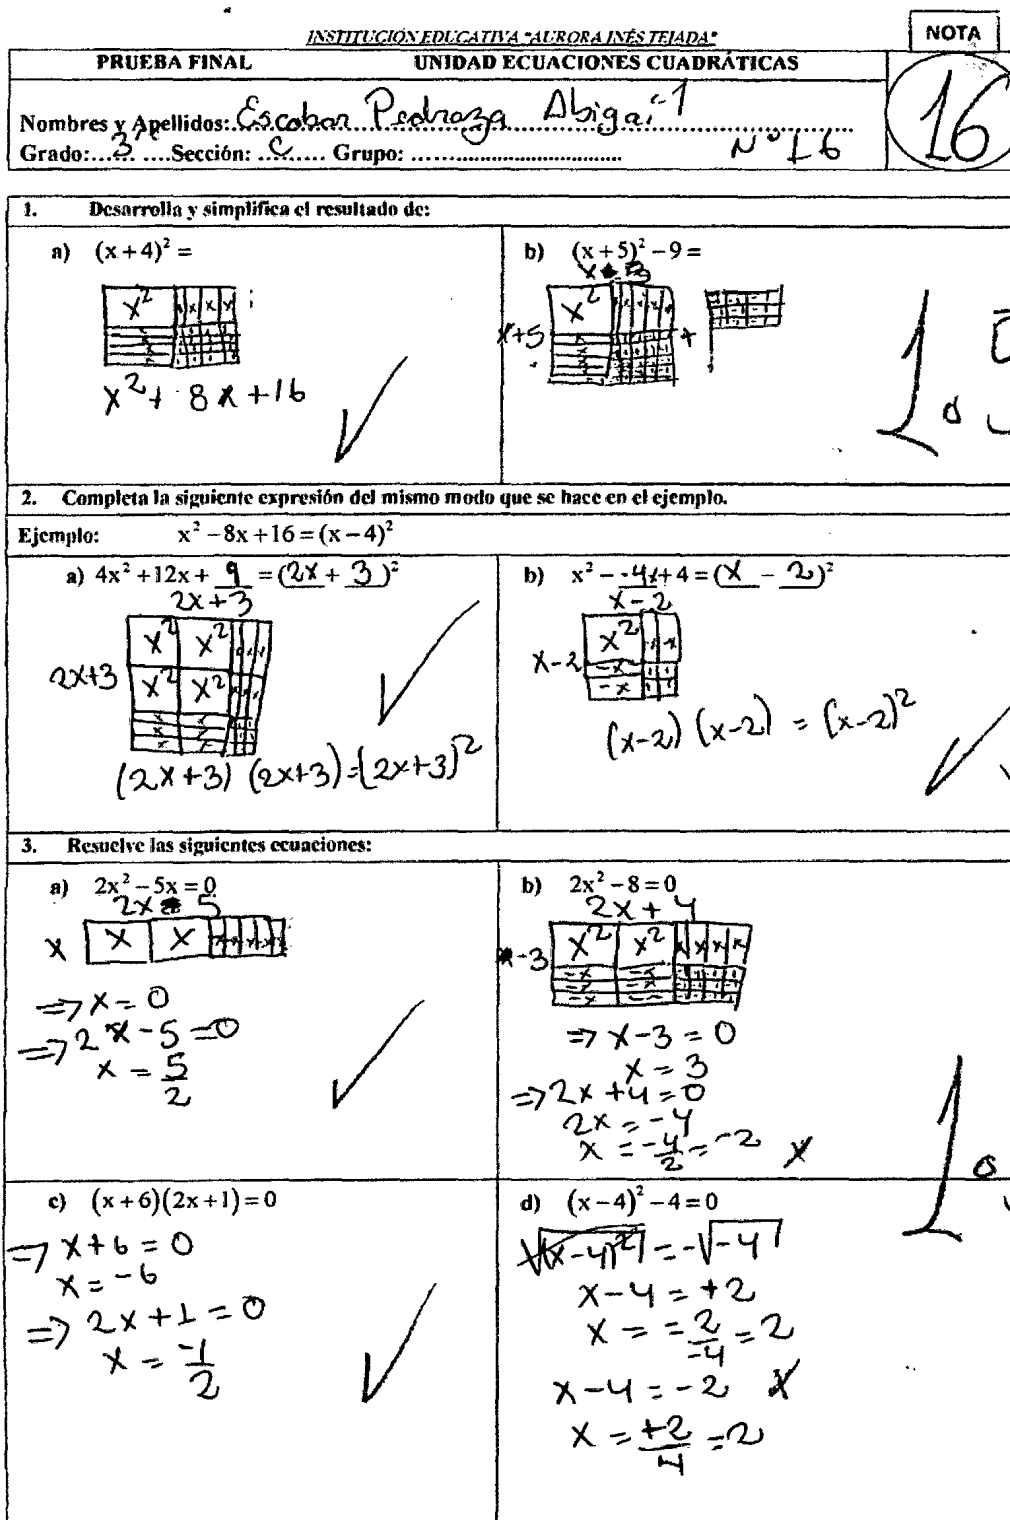 INSTITUCIÓN EDUCATIVA "AURORA INÉS TEJADA"
NOTA
PRUEBA FINAL UNIDAD ECUACIONES CUADRÁTICAS
16
Nombres y Apellidos: Escobar Pedraza Abigail
Grado: 3° Sección: C Grupo: ........ N° 16
1. Desarrolla y simplifica el resultado de:
a) (x + 4)² =
x² x x x x
x² + 8x + 16
b) (x + 5)² − 9 =
x+5
x²
+
1.5
2. Completa la siguiente expresión del mismo modo que se hace en el ejemplo.
Ejemplo: x² − 8x + 16 = (x − 4)²
a) 4x² + 12x + 9 = (2x + 3)²
2x + 3
x² x²
2x+3
x² x²
(2x+3) (2x+3) = (2x+3)²
b) x² − -4x + 4 = (x − 2)²
x - 2
x² -x -x
x-2
-x
-x
(x-2) (x-2) = (x-2)²
3. Resuelve las siguientes ecuaciones:
a) 2x² − 5x = 0
2x 5
x x x
⇒ x = 0
⇒ 2x - 5 = 0
x = 5/2
b) 2x² − 8 = 0
2x + 4
x² x² x x x x
-3
⇒ x - 3 = 0
x = 3
⇒ 2x + 4 = 0
2x = -4
x = -4/2 = -2
1.
c) (x + 6)(2x + 1) = 0
⇒ x + 6 = 0
x = -6
⇒ 2x + 1 = 0
x = -1/2
d) (x − 4)² − 4 = 0
√(x-4)² = -√-4
x - 4 = +2
x = =2/-4 = 2
x - 4 = -2
x = +2/4 = 2